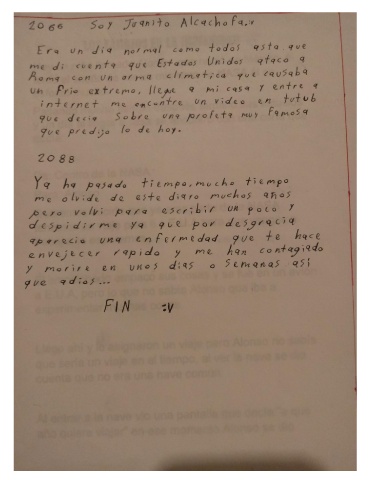 2066 Soy Juanito Alcachofa..
Era un dia normal como todos asta que
me di cuenta que Estados Unidos ataco a
Roma con un arma climatica que causaba
un frio extremo, llege a mi casa y entre a
internet me encontre un video en tutub
que decia sobre una profeta muy famosa
que predijo lo de hoy.
2088
Ya ha pasado tiempo, mucho tiempo
me olvide de este diaro muchos años
pero volvi para escribir un poco y
despidirme ya que por desgracia
aparecio una enfermedad que te hace
envejecer rapido y me han contagiado
y morire en unos dias o semanas asi
que adios...
FIN :v